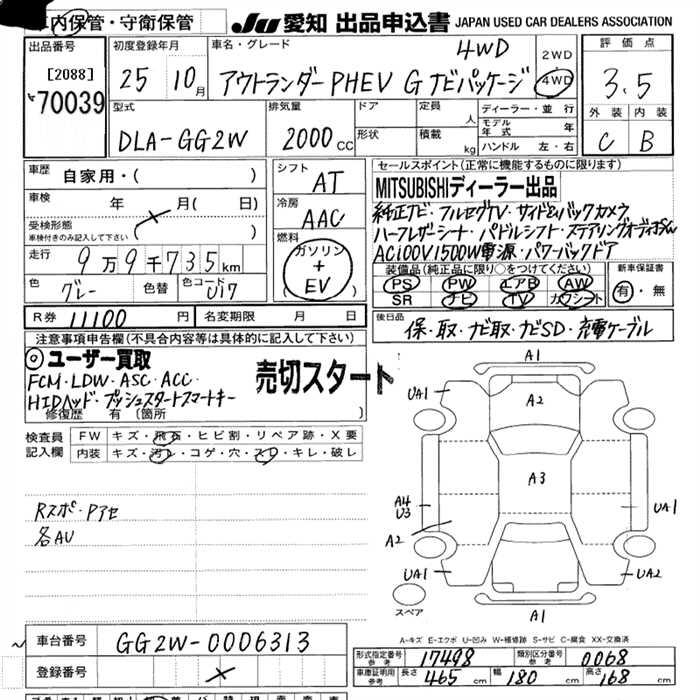 車内保管・守衛保管
JU 愛知 出品申込書 JAPAN USED CAR DEALERS ASSOCIATION
出品番号
[2088]
70039
初度登録年月
25 10月
車名・グレード
4WD
アウトランダーPHEV G ナビパッケージ
2WD
4WD
評価点
3.5
外装 内装
C B
型式
DLA-GG2W
排気量
2000cc
ドア
形状
定員 人
積載 kg
ディーラー・並 行
モデル年式 年
ハンドル 左・右
車歴 自家用・( )
車検 年 月( 日)
受検形態
車検付きのみ記入して下さい ( )
走行 9万9千735km
色 グレー
色替
色コード U17
シフト AT
冷房 AAC
燃料 ガソリン
+
EV
セールスポイント(正常に機能するものに限ります)
MITSUBISHIディーラー出品
純正ナビ・フルセグTV・サイド&バックカメラ
ハーフレザーシート・パドルシフト・ステアリングオーディオSW
AC100V1500W電源・パワーバックドア
装備品(純正品に限り○をつけてください)
PS PW エアB AW
SR ナビ TV カワシート
新車保証書
有・無
R券 11100円
名変期限 月 日
後日品
保・取・ナビ取・ナビSD・充電ケーブル
注意事項申告欄(不具合内容等は具体的に記入して下さい)
◎ユーザー買取
FCM・LDW・ASC・ACC・
HIDヘッド・プッシュスタートスマートキー
売切スタート
修復歴 有 (箇所 )
検査員記入欄
FW キズ・飛石・ヒビ割・リペア跡・X要
内装 キズ・汚レ・コゲ・穴・スレ・キレ・破レ
Rスポ・Pアセ
各AU
A1
UA1
A2
UA1
A3
A4
U3
UA1
A2
UA1
UA2
スペア
A1
A-キズ E-エクボ U-凹み W-補修跡 S-サビ C-腐食 XX-交換済
車台番号 GG2W-0006313
登録番号
形式指定番号 参考 17498
類別区分番号 参考 0068
車庫証明用 参考 長さ 465cm 幅 180cm 高さ 168cm